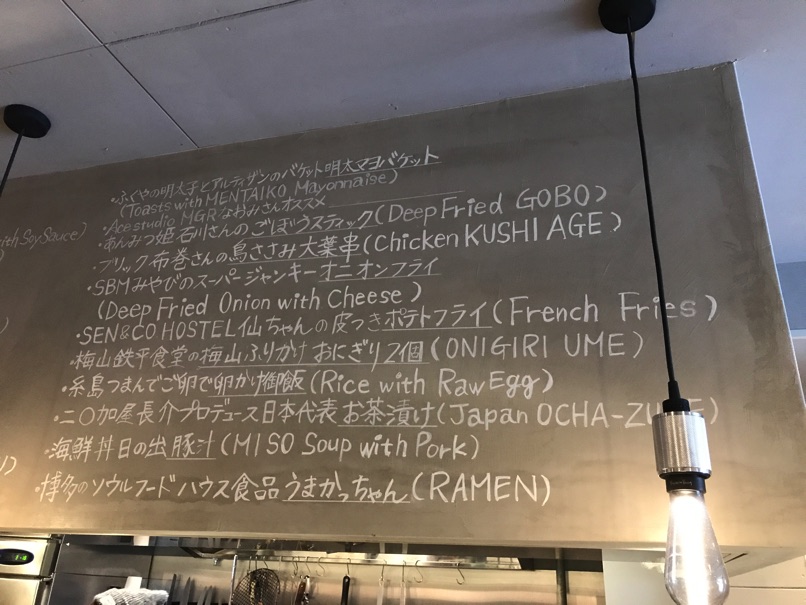 ・ふくやの明太子とアルティザンのバケット明太マヨバケット
(Toasts with MENTAIKO Mayonnaise)
・Ace studio MGRなおみさんオススメ
・あんみつ姫石川さんのごぼうスティック(Deep Fried GOBO)
with Soy Sauce)
・ブリック布巻さんの鳥ささみ大葉串(Chicken KUSHI AGE)
・SBMみやびのスーパージャンキーオニオンフライ
(Deep Fried Onion with Cheese)
・SEN&CO HOSTEL仙ちゃんの皮つきポテトフライ(French Fries)
・梅山鉄平食堂の梅山ふりかけおにぎり2個(ONIGIRI UME)
・糸島つまんでご卵で卵かけ御飯(Rice with Raw Egg)
・二〇加屋長介プロデュース日本代表お茶漬け(Japan OCHA-ZUKE)
・海鮮丼日の出豚汁(MISO Soup with Pork)
・博多のソウルフードハウス食品うまかっちゃん(RAMEN)